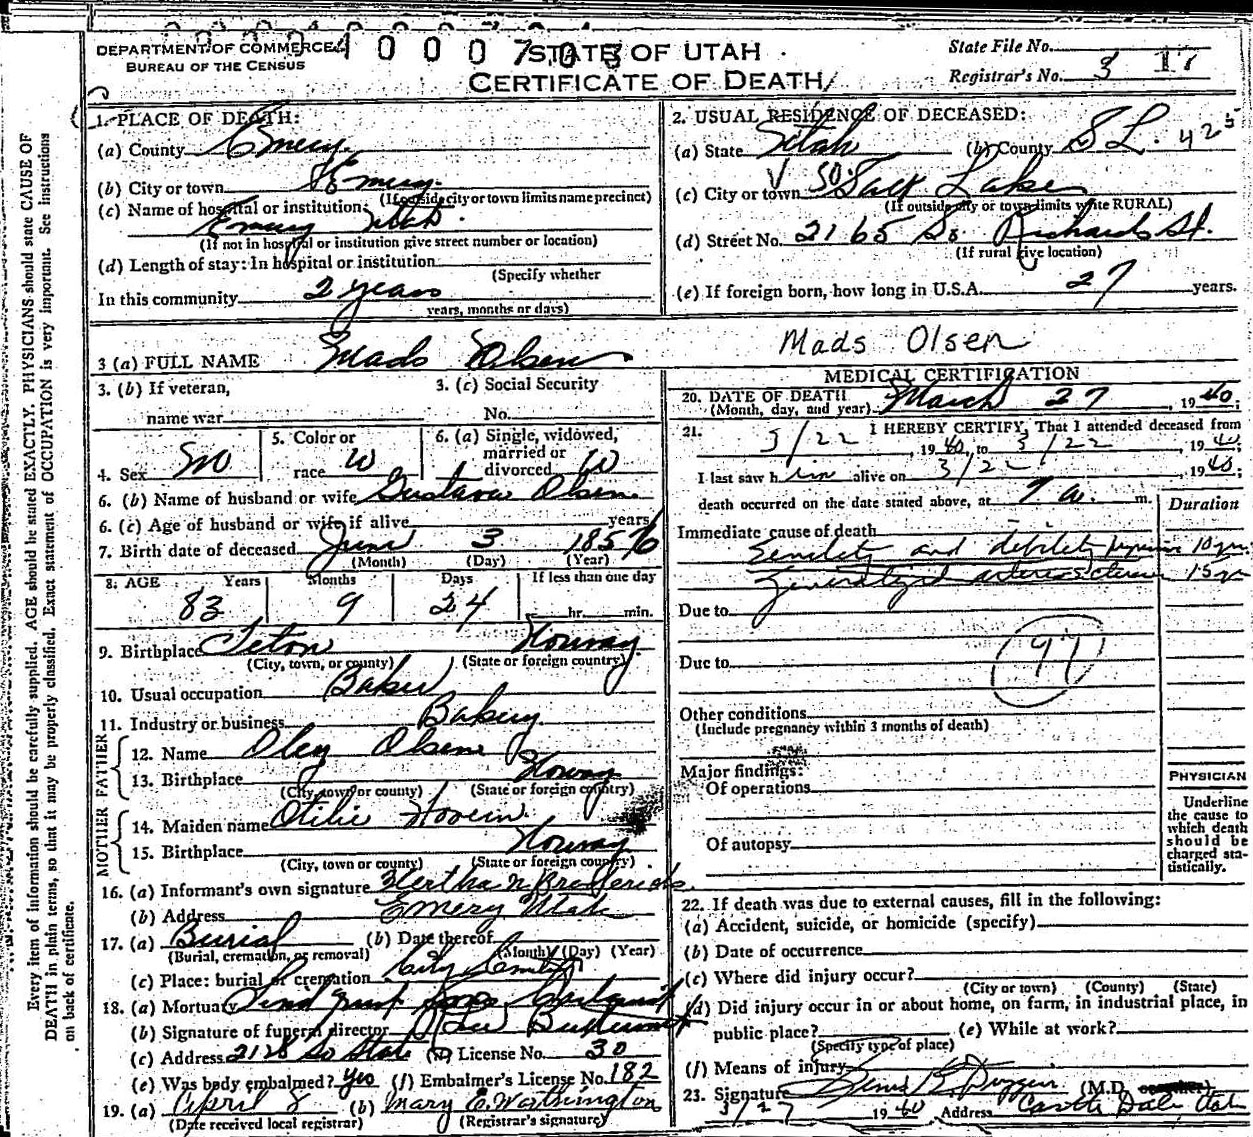 DEPARTMENT OF COMMERCE
BUREAU OF THE CENSUS
STATE OF UTAH
CERTIFICATE OF DEATH
State File No.
Registrar's No. 3 17
1. PLACE OF DEATH:
(a) County Emery
(b) City or town Emery
(If outside city or town limits name precinct)
(c) Name of hospital or institution:
Emery Utah
(If not in hospital or institution give street number or location)
(d) Length of stay: In hospital or institution
(Specify whether
In this community 2 years
years, months or days)
2. USUAL RESIDENCE OF DECEASED:
(a) State Utah (b) County S L. 425
(c) City or town So Salt Lake
(If outside city or town limits write RURAL)
(d) Street No. 2165 So Richards St.
(If rural give location)
(e) If foreign born, how long in U.S.A. 27 years.
3 (a) FULL NAME Mads Olsen Mads Olsen
3. (b) If veteran,
name war
3. (c) Social Security
No.
4. Sex M
5. Color or
race W
6. (a) Single, widowed,
married or
divorced W
6. (b) Name of husband or wife Gustava Olsen
6. (c) Age of husband or wife if alive years
7. Birth date of deceased June 3 1856
(Month) (Day) (Year)
8. AGE Years Months Days If less than one day
83 9 24 hr. min.
9. Birthplace Norway
(City, town, or county) (State or foreign country)
10. Usual occupation Baker
11. Industry or business Bakery
FATHER
12. Name Oley Olsen
13. Birthplace Norway
(City, town or county) (State or foreign country)
MOTHER
14. Maiden name Otilie
15. Birthplace Norway
(City, town or county) (State or foreign country)
16. (a) Informant's own signature Hertha N Broderick
(b) Address Emery Utah
17. (a) Burial (b) Date thereof
(Burial, cremation, or removal) (Month) (Day) (Year)
(c) Place: burial or cremation City
18. (a) Mortuary
(b) Signature of funeral director
(c) Address 2128 So State (d) License No. 30
(e) Was body embalmed? yes (f) Embalmer's License No. 182
19. (a) April 8 (b) Mary E. Worthington
(Date received local registrar) (Registrar's signature)
MEDICAL CERTIFICATION
20. DATE OF DEATH
(Month, day, and year) March 27, 1940
21. I HEREBY CERTIFY, That I attended deceased from
3/22, 1940, to 3/22, 1940;
I last saw him alive on 3/22, 1940;
death occurred on the date stated above, at 7 a. m.
Duration
Immediate cause of death
Senility and debility 10 yrs
Generalized arteriosclerosis 15 yr
Due to
Due to
97
Other conditions
(Include pregnancy within 3 months of death)
Major findings:
Of operations
Of autopsy
PHYSICIAN
Underline
the cause to
which death
should be
charged sta-
tistically.
22. If death was due to external causes, fill in the following:
(a) Accident, suicide, or homicide (specify)
(b) Date of occurrence
(c) Where did injury occur?
(City or town) (County) (State)
(d) Did injury occur in or about home, on farm, in industrial place, in
public place? (e) While at work?
(Specify type of place)
(f) Means of injury
23. Signature (M.D.
3/27 1940 Address Castle Dale, Utah
Every item of information should be carefully supplied. AGE should be stated EXACTLY. PHYSICIANS should state CAUSE OF
DEATH in plain terms, so that it may be properly classified. Exact statement of OCCUPATION is very important. See instructions
on back of certificate.